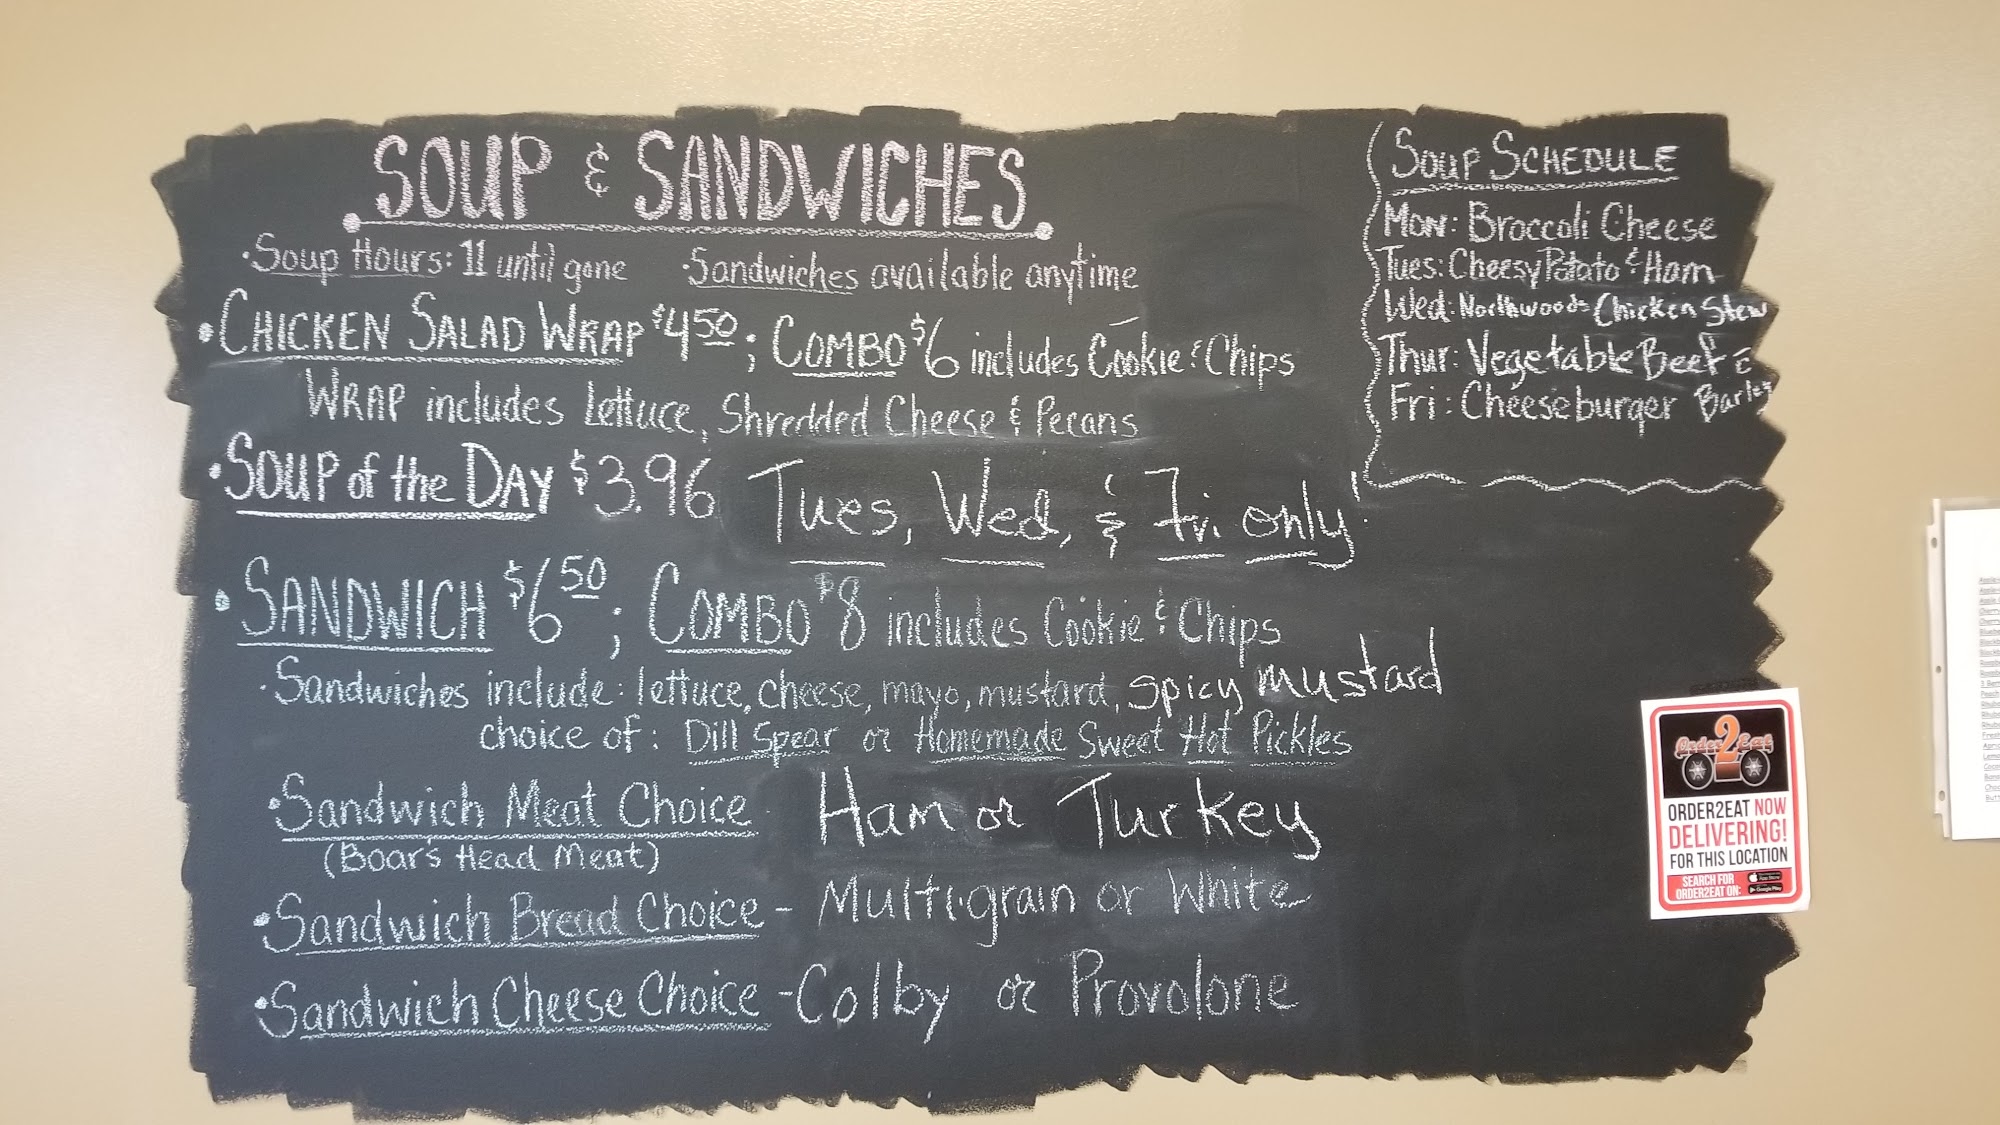 SOUP & SANDWICHES
•Soup Hours: 11 until gone •Sandwiches available anytime
•CHICKEN SALAD WRAP $4.50; COMBO $6 includes Cookie & Chips
WRAP includes Lettuce, Shredded Cheese & Pecans
•SOUP of the DAY $3.96 Tues, Wed, & Fri only!
•SANDWICH $6.50; COMBO $8 includes Cookie & Chips
•Sandwiches include: lettuce, cheese, mayo, mustard, spicy mustard
choice of: Dill Spear or Homemade Sweet Hot Pickles
•Sandwich Meat Choice Ham or Turkey
(Boar's Head Meat)
•Sandwich Bread Choice - Multi-grain or White
•Sandwich Cheese Choice - Colby or Provolone
SOUP SCHEDULE
Mon: Broccoli Cheese
Tues: Cheesy Potato & Ham
Wed: Northwoods Chicken Stew
Thur: Vegetable Beef &
Barley
Fri: Cheeseburger
Order2Eat
ORDER2EAT NOW
DELIVERING!
FOR THIS LOCATION
SEARCH FOR
ORDER2EAT ON:
App Store
Google Play